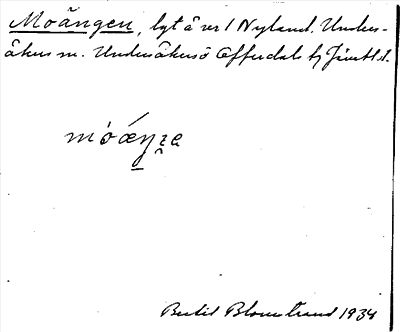 Moängen, byt å nr 1 Nyland, Unders-
åkers sn. Undersåkers o Offerdals tg Jämtl. l.
móæŋ̱ʒe
Bertil Blomstrand 1934